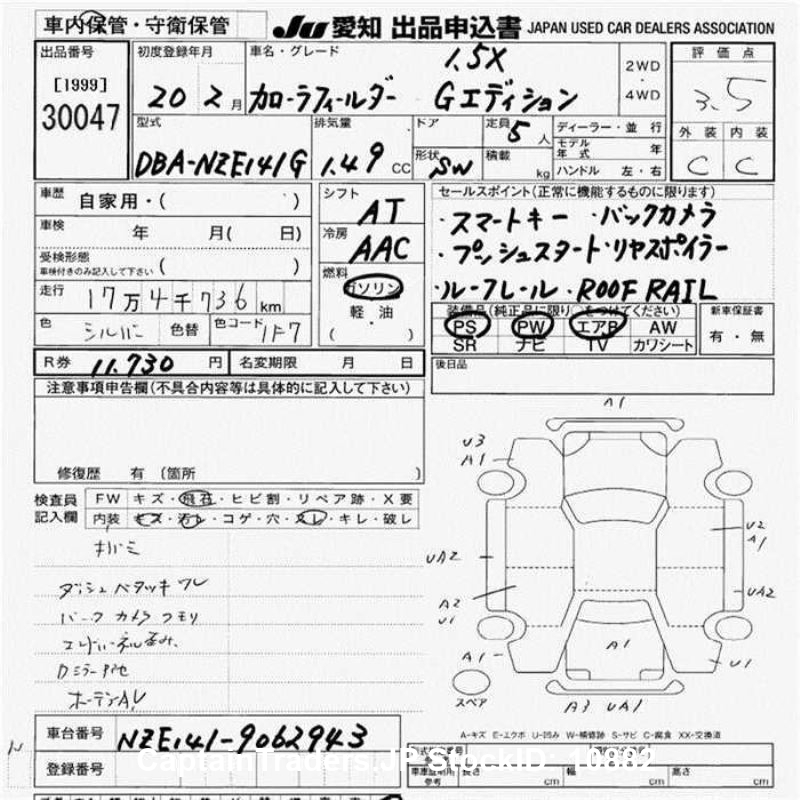 車内保管・守衛保管
JU 愛知 出品申込書 JAPAN USED CAR DEALERS ASSOCIATION
出品番号
[1999]
30047
初度登録年月
20 2 月
車名・グレード
1.5X
カローラフィールダー Gエディション
2WD
・
4WD
評価点
3.5
外装 内装
C C
型式
DBA-NZE141G
排気量
1.49 CC
ドア
形状 SW
定員 5 人
積載 kg
ディーラー・並行
モデル年式 年
ハンドル 左・右
車歴 自家用・( )
車検 年 月( 日)
受検形態
車検付きのみ記入して下さい ( )
走行 17万4千736 km
色 シルバー 色替 色コード 1F7
シフト
AT
冷房
AAC
燃料
ガソリン
・
軽・油
( )
セールスポイント(正常に機能するものに限ります)
・スマートキー ・バックカメラ
・プッシュスタート・リヤスポイラー
・ルーフレール・ROOF RAIL
装備品(純正品に限り○をつけてください)
PS PW エアB AW
SR ナビ TV カワシート
新車保証書
有・無
R券 11.730 円 名変期限 月 日
後日品
注意事項申告欄(不具合内容等は具体的に記入して下さい)
修復歴 有 (箇所 )
検査員
記入欄
FW キズ・飛石・ヒビ割・リペア跡・X要
内装 キズ・汚レ・コゲ・穴・スレ・キレ・破レ
ダッシュベタツキ ワレ
バックカメラ クモリ
A1
U3
A1
UA2
A2
U1
A1
U2
A1
UA2
U1
A1
A3 UA1
スペア
A-キズ E-エクボ U-凹み W-補修跡 S-サビ C-腐食 XX-交換済
車台番号 NZE141-9062943
登録番号
CaptainTraders.JP StockID: 10882
車庫証明用
参考
長さ cm 幅 cm 高さ cm